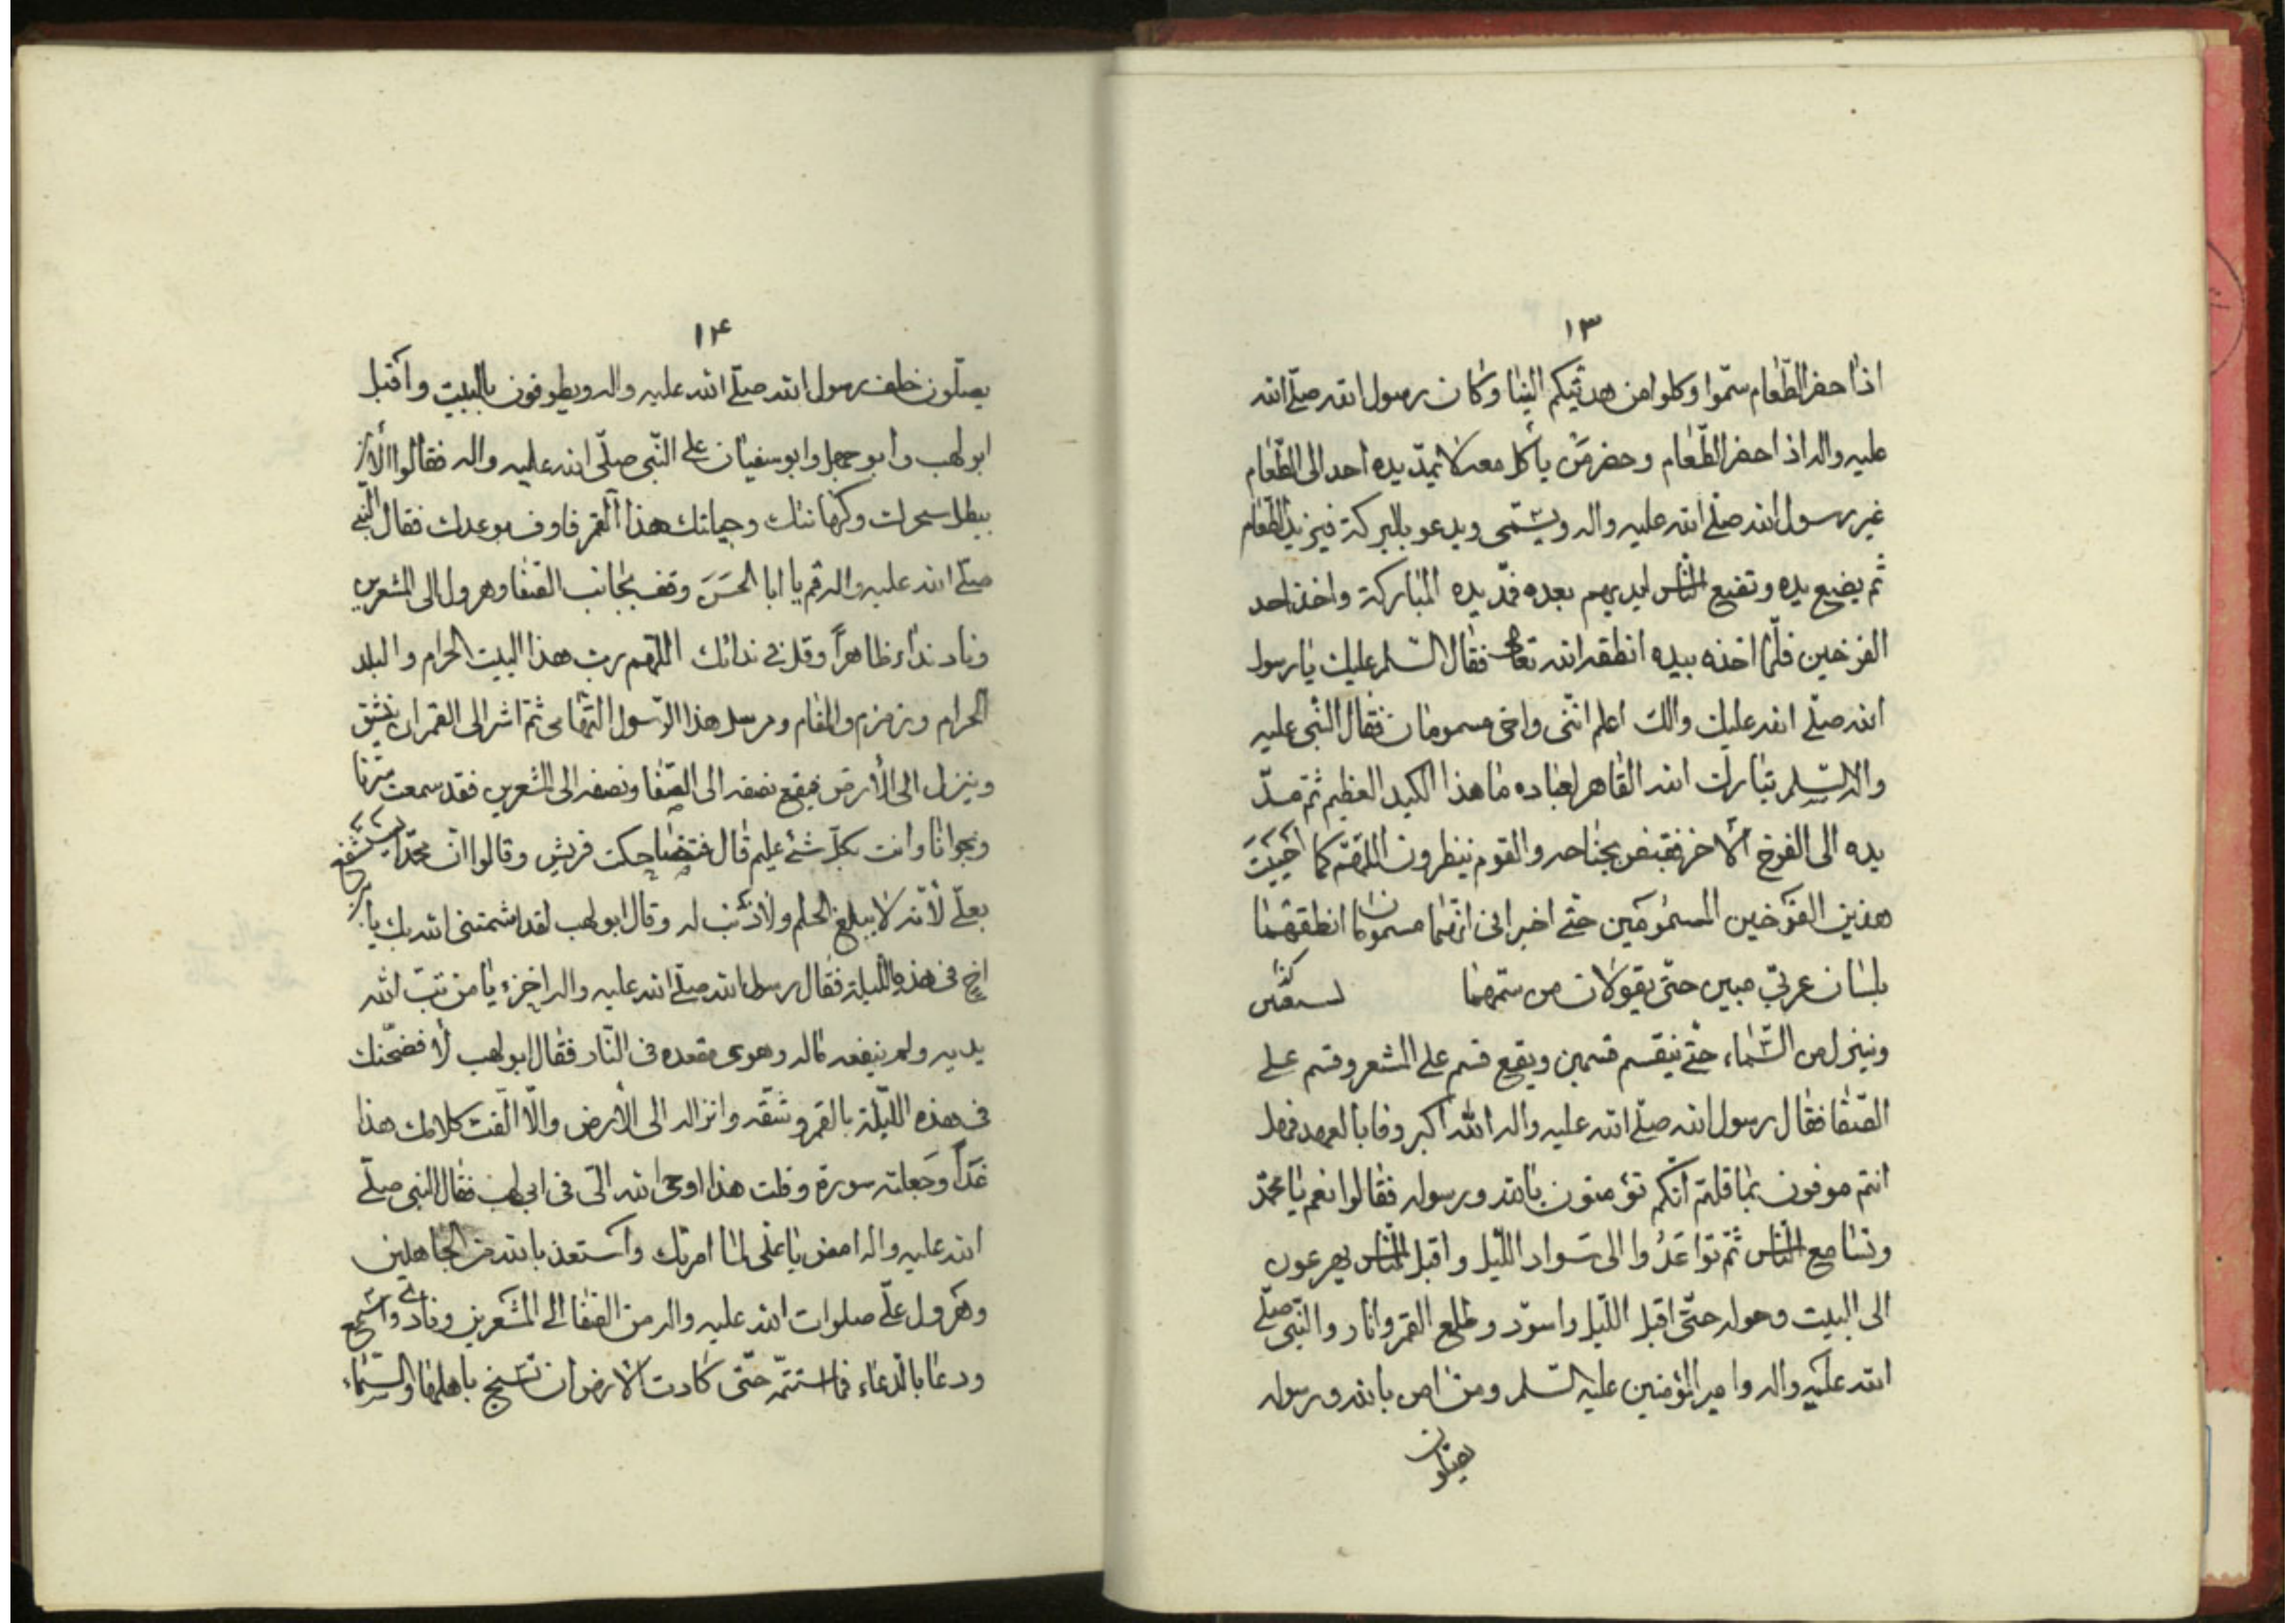 ١٣
اذا حضر الطّعام سمّوا وكلوا من هديّتكم الينا وكان رسول الله صلّى الله
عليه واله اذا حضر الطّعام وحضر مَن يأكل معه لا يمدّ يده احد الى الطّعام
غير رسول الله صلّى الله عليه واله ويسمّى ويدعو بالبركة فيزيد الطّعام
ثم يضع يده وتقع النّاس ايديهم بعده فمدّ يده المباركة واخذ احد
الفرخين فلمّا اخذه بيده انطقه الله تعالى فقال السّلم عليك يا رسول
الله صلّى الله عليك والك اعلم انّنى واخى مسمومان فقال النّبى عليه
واله السّلم تبارك الله القاهر لعباده ما هذا الكيد العظيم ثمّ مدّ
يده الى الفرخ الاخر فقبض بجناحه والقوم ينظرون اللّهمّ كما احييت
هذين الفرخين المسمومين حتّى اخبرانى انّهما مسمومان انطقهما
بلسان عربّي مبين حتّى يقولان من سمّهما
وينزل من السّماء حتّى ينقسم قسمين ويقع قسم على المشعر وقسم على
الصّفا فقال رسول الله صلّى الله عليه واله الله اكبر وفا بالعهد فهل
انتم موفون بما قلتم انّكم تؤمنون بالله ورسوله فقالوا نعم يا محمّد
وتسامع النّاس ثمّ تواعَدُوا الى سَواد اللّيل واقبل النّاس يهرعون
الى البيت وحوله حتّى اقبل اللّيل واسودّ وطلع القمر وانار والنّبى صلّى
الله عليه واله وامير المؤمنين عليه السّلم ومن امن بالله ورسوله
يصلّون
١۴
يصلّون خلف رسول الله صلّى الله عليه واله ويطوفون بالبيت واقبل
ابو لهب وابو جهل وابو سفيان على النّبى صلّى الله عليه واله فقالوا الأن
يبطل سحرك وكهانتك وحياتك هذا القمر فاوف بوعدك فقال النّبى
صلّى الله عليه واله قم يا ابا الحَسَن وقف بجانب الصّفا وهرول الى المشعرين
وناد نداء ظاهراً وقل فى ندائك اللّهم رب هذا البيت الحرام والبلد
الحرام وزمزم والمقام ومرسل هذا الرّسول التّهامى ثمّ اشر الى القمر ان ينشق
وينزل الى الأرض فيقع نصفه الى الصّفا ونصفه الى المشعرين فقد سمعت سرّنا
ونجوانا وانت بكلّ شئ عليم قال فتضاحكت قريش وقالوا انّ محمّدا يستشفع
بعلّى لأنّه لا يبلغ الحلم ولا ذنب له وقال ابو لهب لقد اشمتنى الله بك يا بن
اخى فى هذه اللّيلة فقال رسول الله صلّى الله عليه واله اخزء يا من تبّ الله
يديه ولم ينفعه ماله وهوى مقعده فى النّار فقال ابو لهب لأفضحنّك
فى هذه اللّيلة بالقمر وشقّه وانزاله الى الأرض والّا الّفت كلامك هذا
غَداً وجَعلته سورة وقلت هذا اوحى الله الىّ فى ابى لهب فقال النبى صلّى
الله عليه واله امض يا علّى لما امرتك واستعذ بالله من الجاهلين
وهَرول علّى صلوات الله عليه واله من الصّفا الى المشعرين ونادى واسمع
ودعا بالدّعاء فما استتمّه حتّى كادت الارض ان تسيخ باهلها والسّماء